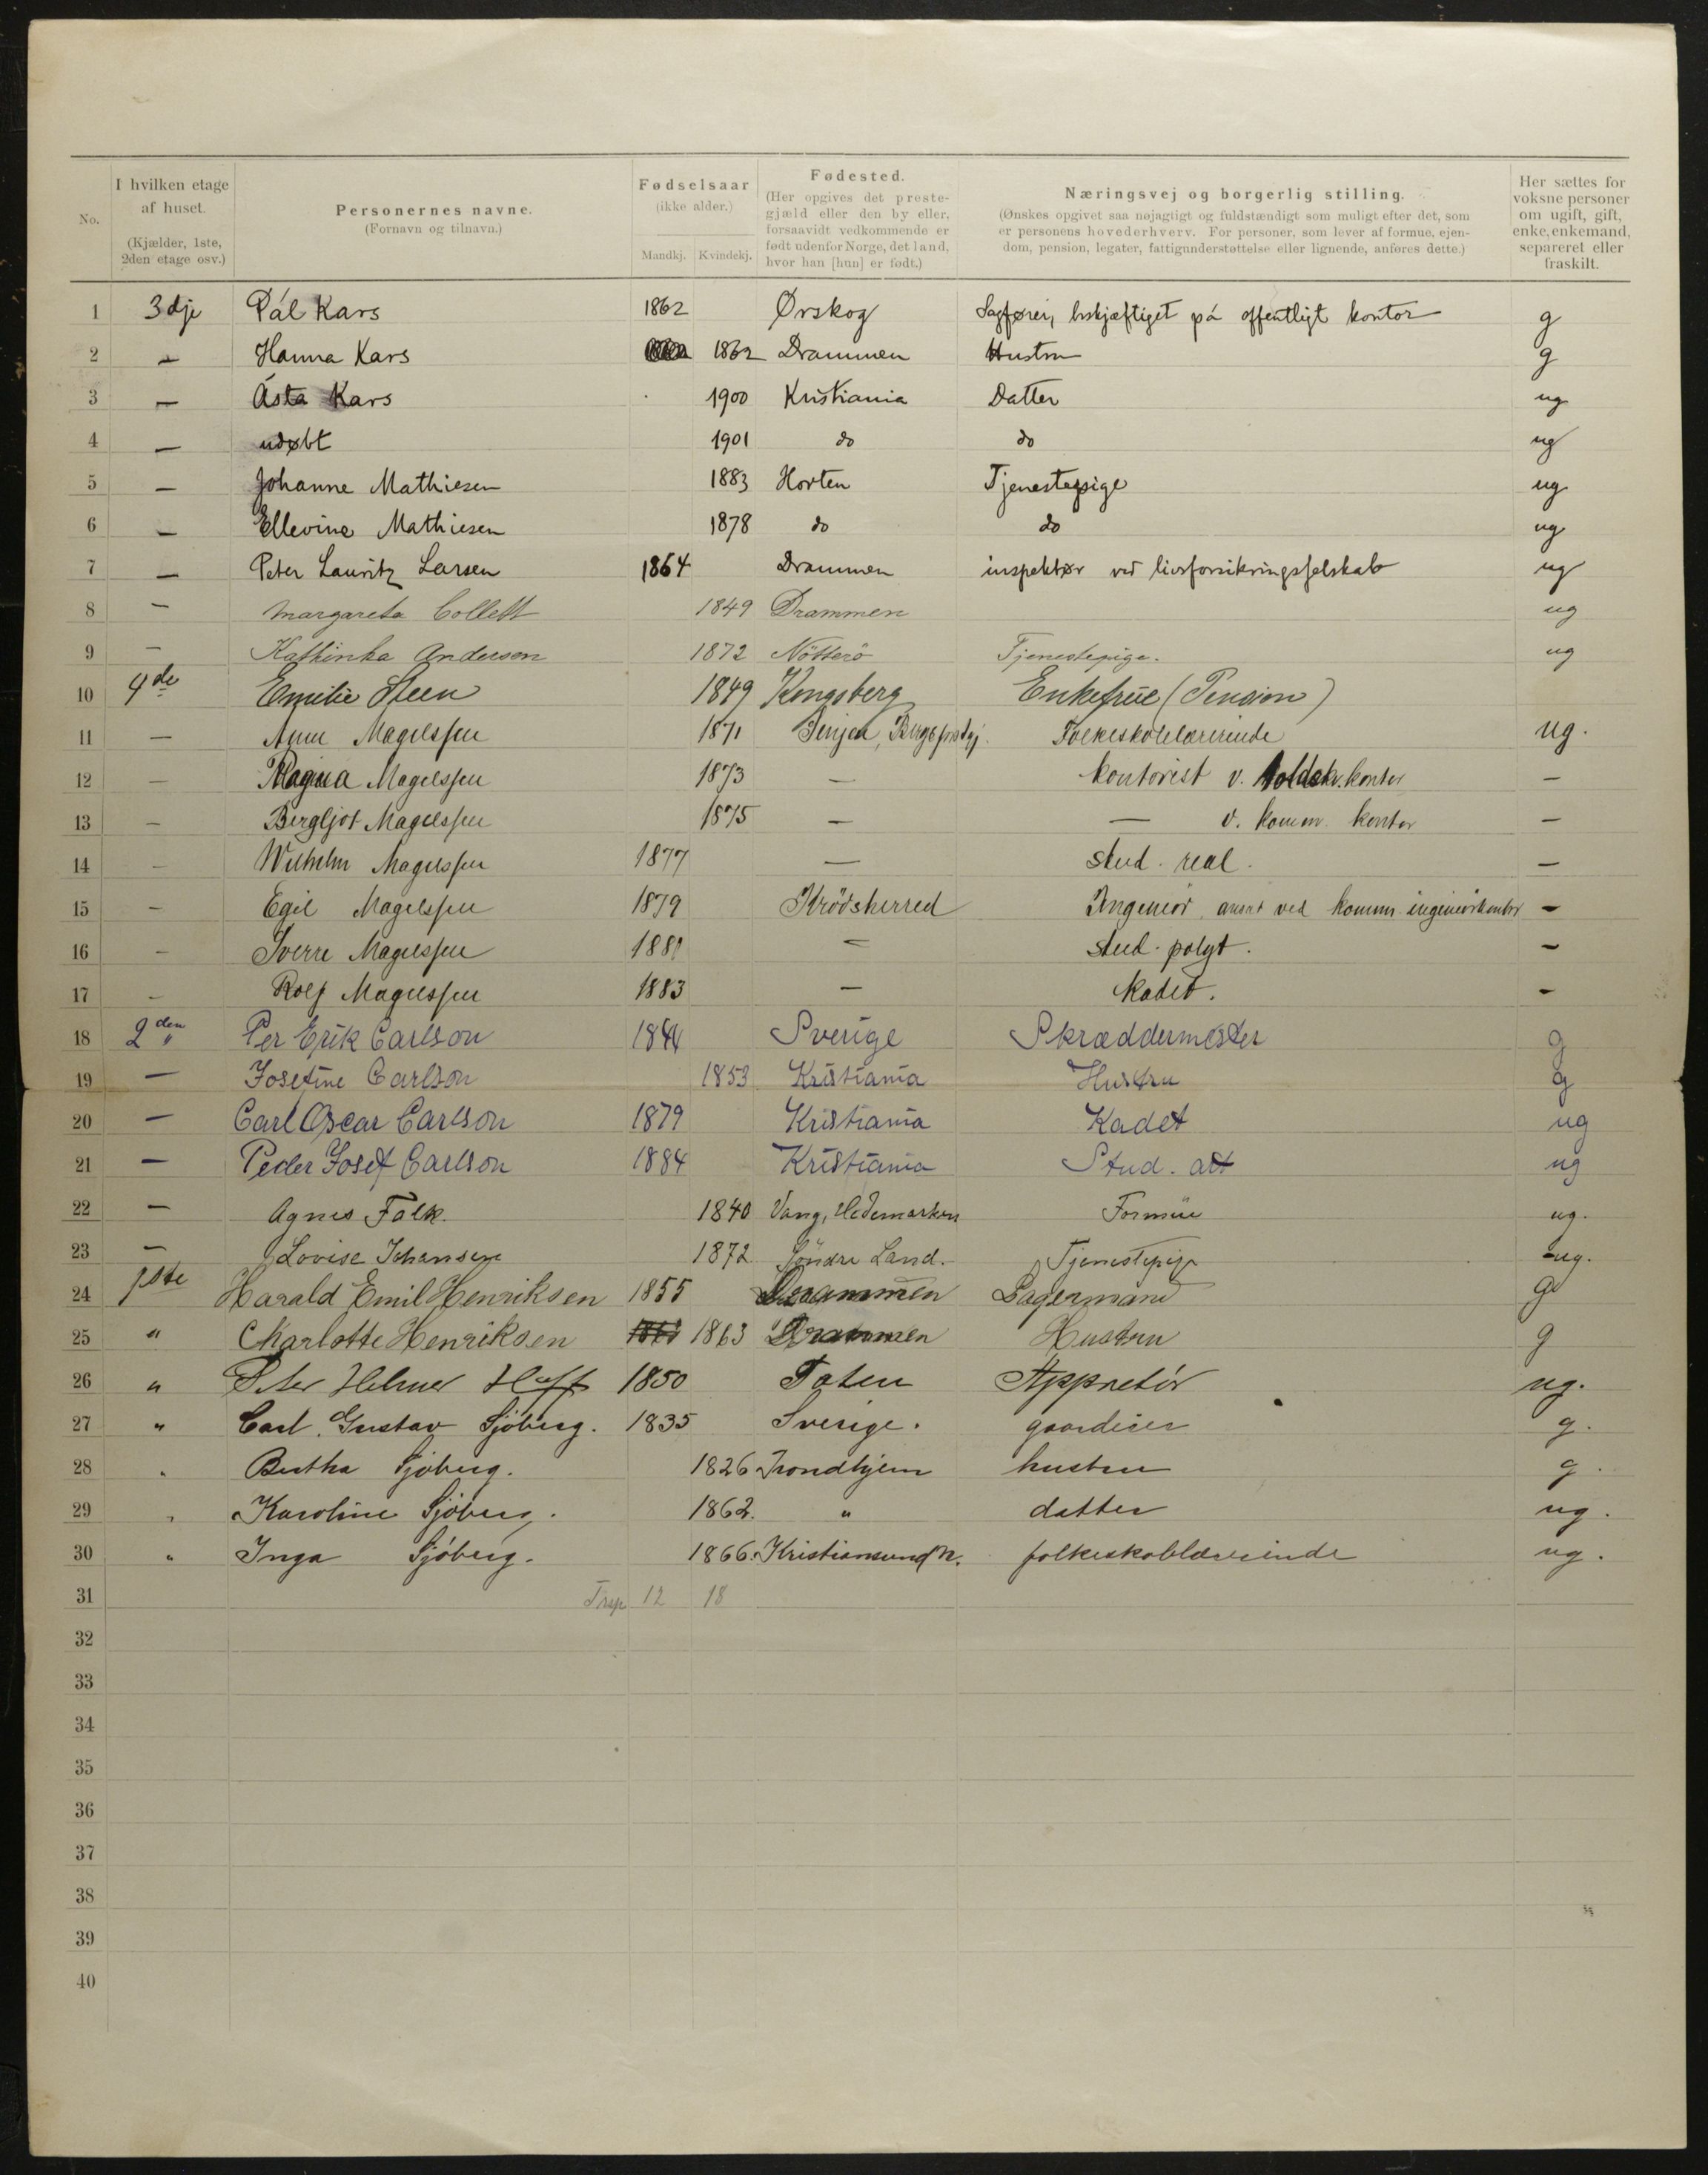 No.
I hvilken etage af huset. (Kjælder, 1ste, 2den etage osv.)
Personernes navne. (Fornavn og tilnavn.)
Fødselsaar (ikke alder.) Mandkj. Kvindekj.
Fødested. (Her opgives det prestegjæld eller den by eller, forsaavidt vedkommende er født udenfor Norge, det land, hvor han [hun] er født.)
Næringsvej og borgerlig stilling. (Ønskes opgivet saa nøjagtigt og fuldstændigt som muligt efter det, som er personens hovederhverv. For personer, som lever af formue, ejendom, pension, legater, fattigunderstøttelse eller lignende, anføres dette.)
Her sættes for voksne personer om ugift, gift, enke, enkemand, separeret eller fraskilt.
1 3dje Pål Kars 1862 Ørskog Sagfører, beskjæftiget på offentligt kontor g
2 — Hanna Kars 1862 Drammen Hustru g
3 — Ásta Kars 1900 Kristiania Datter ug
4 — udøbt 1901 do do ug
5 — Johanne Mathiesen 1883 Horten Tjenestepige ug
6 — Ellevine Mathiesen 1878 do do ug
7 — Peter Lauritz Larsen 1864 Drammen inspektør ved livsforsikringsselskab ug
8 — Margareta Collett 1849 Drammen ug
9 — Kathinka Andersen 1872 Nötterö Tjenestepige. ug
10 4de Emilie Steen 1849 Kongsberg Enkefrue (Pension)
11 — Anna Magelssen 1871 Senjen, Bergs prstgj. Folkeskolelærerinde ug.
12 — Magna Magelssen 1873 — kontorist v. kontor —
13 — Bergljot Magelssen 1875 — — v. komm. kontor —
14 — Wilhelm Magelssen 1877 — stud. real. —
15 — Egil Magelssen 1879 Krödsherred Ingeniör, ansat ved komm. ingeniörkontor —
16 — Sverre Magelssen 1881 — stud. polyt. —
17 — Rolf Magelssen 1883 — Kadet. —
18 2den Per Erik Carlson 1844 Sverige Skræddermester g
19 — Josefine Carlson 1853 Kristiania Hustru g
20 — Carl Oscar Carlson 1879 Kristiania Kadet ug
21 — Peder Josef Carlson 1884 Kristiania Stud. art ug
22 — Agnes Falk. 1840 Vang, Hedemarken Formue ug.
23 — Lovise Johansen 1872 Söndre Land. Tjenestepige ug.
24 1ste Harald Emil Henriksen 1855 Drammen Lagermand g
25 " Charlotte Henriksen 1863 1863 Drammen Hustru g
26 " Peter Helmer Hoff 1850 Toten Appretör ug.
27 " Carl. Gustav Sjöberg. 1835 Sverige. gaardeier g.
28 " Bertha Sjöberg. 1826 Trondhjem hustru g.
29 " Karoline Sjöberg. 1862. " datter ug.
30 " Inga Sjöberg. 1866. Kristiansund N. folkeskolelærerinde ug.
31 12 18
32
33
34
35
36
37
38
39
40